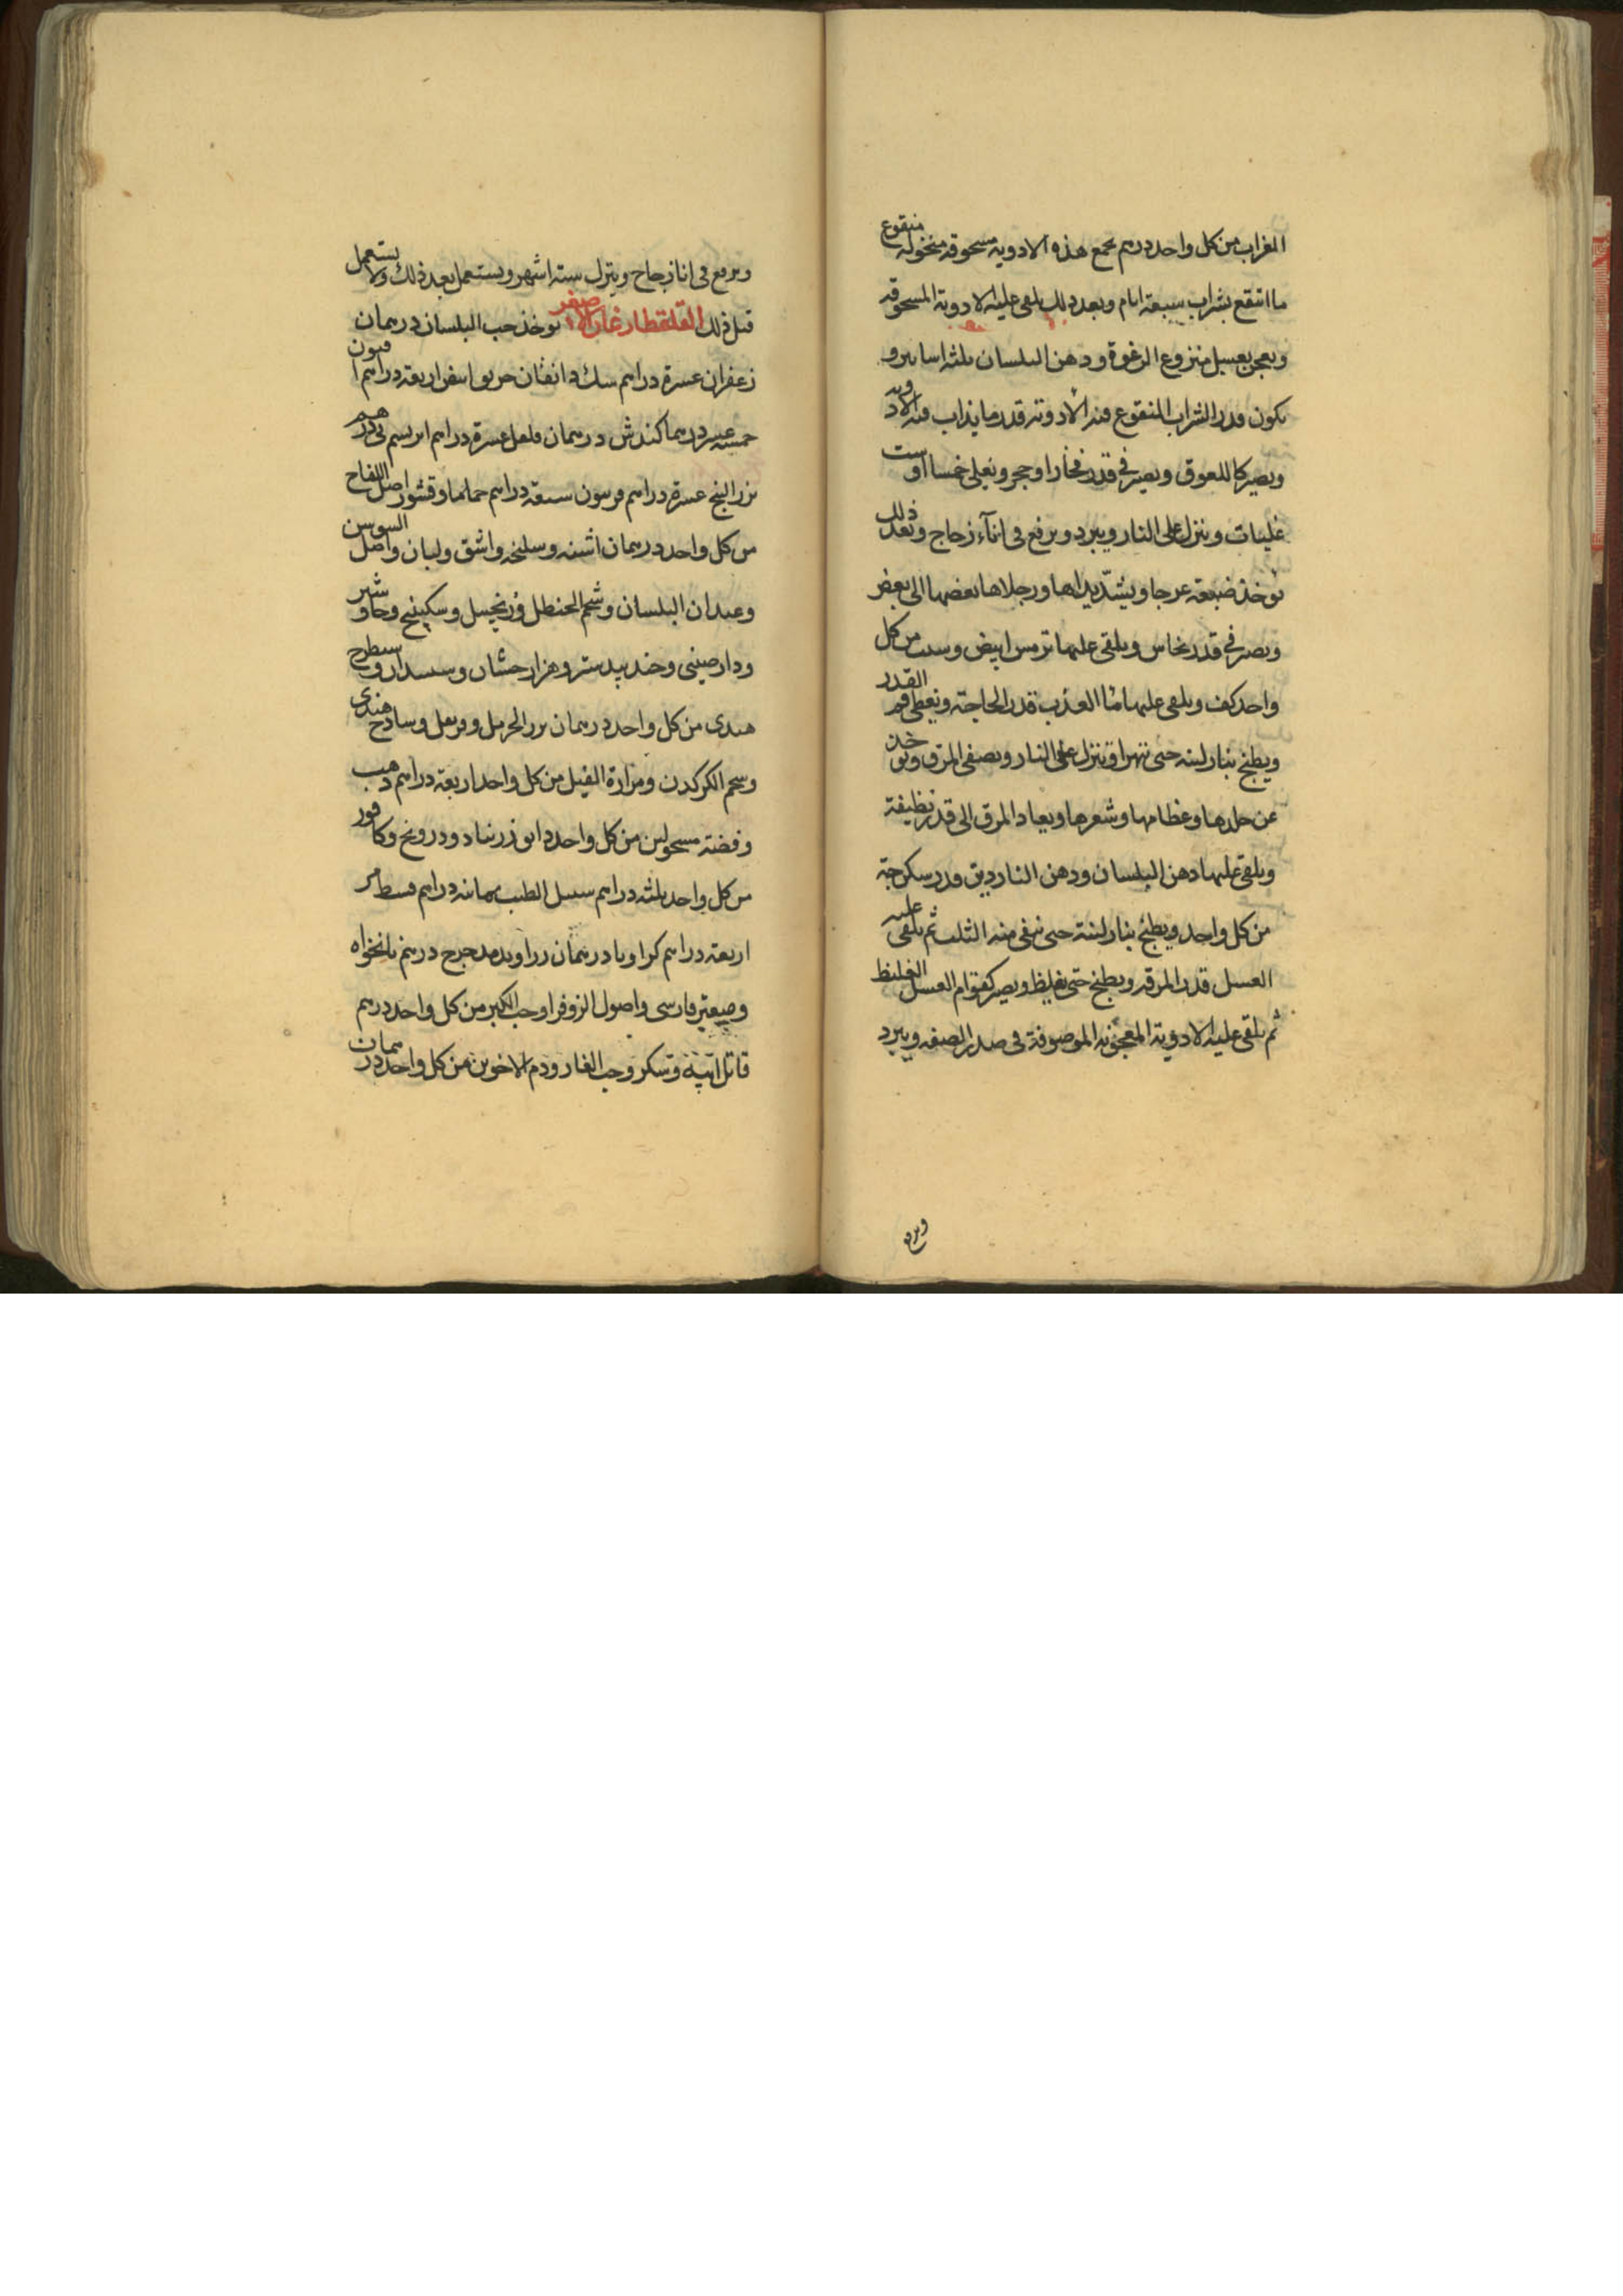 الغراب من كل واحد درهم يجمع هذه الادويه مسحوقه منخوله منقوع
ما انتقع بشراب سبعة ايام وبعد ذلك يلقى عليه الادوية المسحوقه
ويعجن بعسل منزوع الرغوة ودهن البلسان ثلثه اساتير و
يكون قدر الشراب المنقوع فيه الادويه قدر ما يذاب فيه الادويه
ويصير كاللعوق ويصير في قدر فخار او حجر ويغلى خمسا او ست
غليات وينزل على النار ويبرد ويرفع في انآء زجاج وبعد ذلك
يوخذ ضبعة عرجا ويشدّ يداها ورجلاها بعضها الى بعض
ويصير في قدر نحاس ويلقى عليها ترمس ابيض وشبت من كل
واحد كف ويلقى عليها مآ العذب قدر الحاجة ويغطى فم القدر
ويطبخ بنار لينه حتى تتهرا وتنزل على النار ويصفى المرق ويوخذ
عن جلدها وعظامها وشعرها ويعاد المرق الى قدر نظيفة
ويلقى عليها دهن البلسان ودهن الناردين قدر سكرجة
من كل واحد ويطبخ بنار لينة حتى يبقى منه الثلث ثم يلقى عليه
العسل قدر المرقه ويطبخ حتى يغليظ ويصير كقوام العسل الغليظ
ثم يلقى عليه الادوية المعجونه الموصوفة في صدر الصفه ويبرد
ويرفع
ويرفع في انا زجاج ويترك ستة اشهر ويستعمل بعد ذلك ولا يستعمل
قبل ذلك القلقطارغان الاصغر يوخذ حب البلسان درهمان
زعفران عشرة دراهم سك دانقان خربق ابيض اربعة دراهم افيون
خمسة عشر درهما كندش درهمان فلفل عشرة دراهم ابريسم نى درهم
بزر البنج عشرة دراهم فربيون سبعة دراهم حماما وقشور اصل اللفاح
من كل واحد درهمان اشنه وسليخه واشق ولبان واصل السوسن
وعيدان البلسان وشحم الحنظل وزنجبيل وسكبينج وجاوشير
ودارصيني وجندبيدستر وهزارجشان وسيسدار وشيطرج
هندى من كل واحد درهمان بزر الحرمل وقرنفل وساذج هندى
وشحم الكركدن ومرارة الفيل من كل واحد اربعة دراهم ذهب
وفضة مسحولين من كل واحد دانق زرنباد ودرونج وكافور
من كل واحد ثلثه دراهم سنبل الطيب ثمانيه دراهم قسط مر
اربعة دراهم كراويا درهمان زراوند مدحرج درهم نانخواه
وصعتر فارسي واصول الزوفرا وحب الكبر من كل واحد درهم
قاتل ابيه وسكر وحب الغار ودم الاخوين من كل واحد درهمان